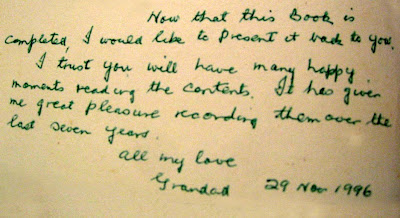 Now that this Book is
completed, I would like to Present it back to you.
I trust you will have many happy
moments reading the contents. It has given
me great pleasure recording them over the
last seven years.
all my love
Grandad 29 Nov 1996